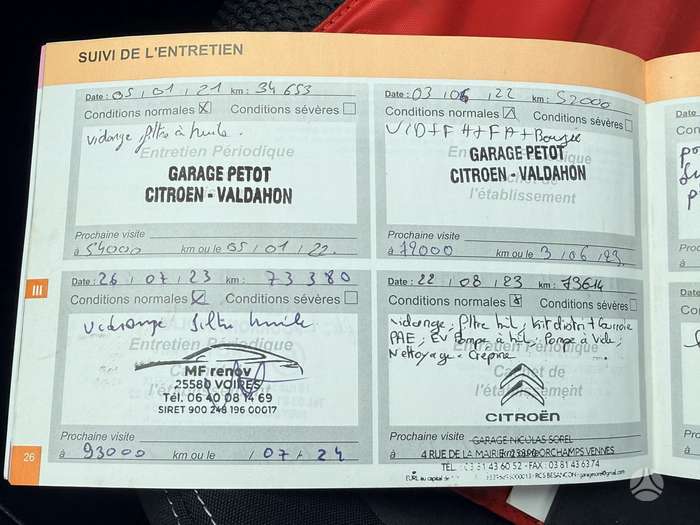 SUIVI DE L'ENTRETIEN
Date : 05 / 01 / 21 km : 34 653
Conditions normales ☒ Conditions sévères ☐
vidange, filtre à huile.
Entretien Périodique
GARAGE PETOT
CITROEN - VALDAHON
Prochaine visite
à 54000 km ou le 05 / 01 / 22.
Date : 03 / 06 / 22 km : 52000
Conditions normales ☒ Conditions sévères ☐
VID + FH + FA + Bougie
Entretien Périodique
GARAGE PETOT
CITROEN - VALDAHON
l'établissement
Prochaine visite
à 72000 km ou le 3 / 06 / 23.
Date : 26 / 07 / 23 km : 73 380
Conditions normales ☒ Conditions sévères ☐
vidange filtre huile
Entretien Périodique
MF renov
25580 VOIRES
Tél. 06 40 08 14 69
SIRET 900 248 196 00017
Prochaine visite
à 93000 km ou le / 07 / 24
Date : 22 / 08 / 23 km : 73614
Conditions normales ☒ Conditions sévères ☐
vidange, filtre huil, kit distri + courroie
PAE, EV Pompe à huil, Pompe à Vide,
Nettoyage Crepine
Entretien Périodique
Cachet de
l'établissement
CITROËN
Prochaine visite
GARAGE NICOLAS SOREL
à 4 RUE DE LA MAIRIE ORCHAMPS VENNES
TEL : 03 81 43 60 52 - FAX : 03 81 43 63 74
EURL au capital de RCS BESANCON
III
26
Date